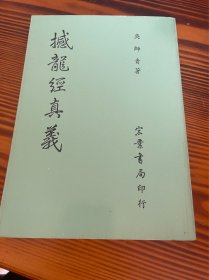 吳師青著
撼龍經真義
宏業書局印行